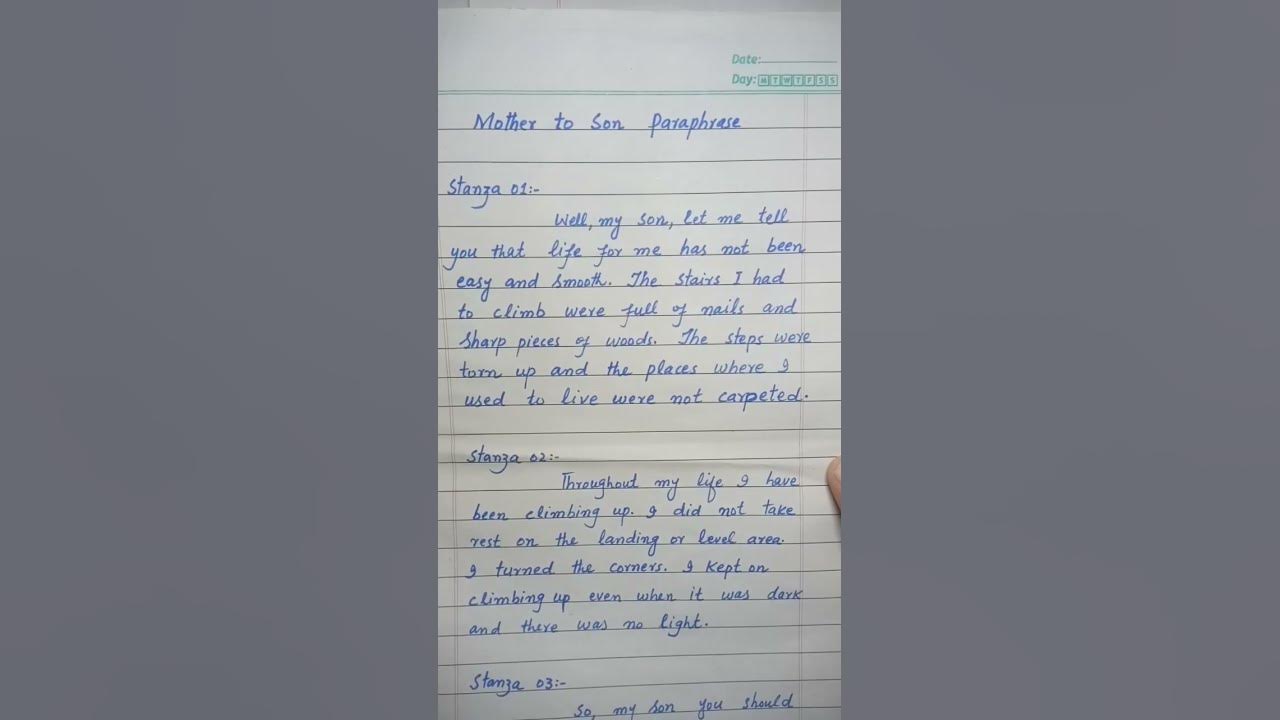 Date:
Day: M T W T F S S
Mother to Son Paraphrase
Stanza 01:-
Well, my son, let me tell
you that life for me has not been
easy and smooth. The stairs I had
to climb were full of nails and
sharp pieces of woods. The steps were
torn up and the places where I
used to live were not carpeted.
Stanza 02:-
Throughout my life I have
been climbing up. I did not take
rest on the landing or level area.
I turned the corners. I kept on
climbing up even when it was dark
and there was no light.
Stanza 03:-
So, my son you should